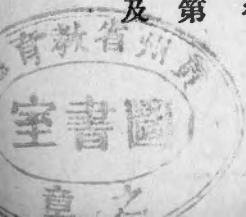 及第
貴州省教育
圖書室
之章